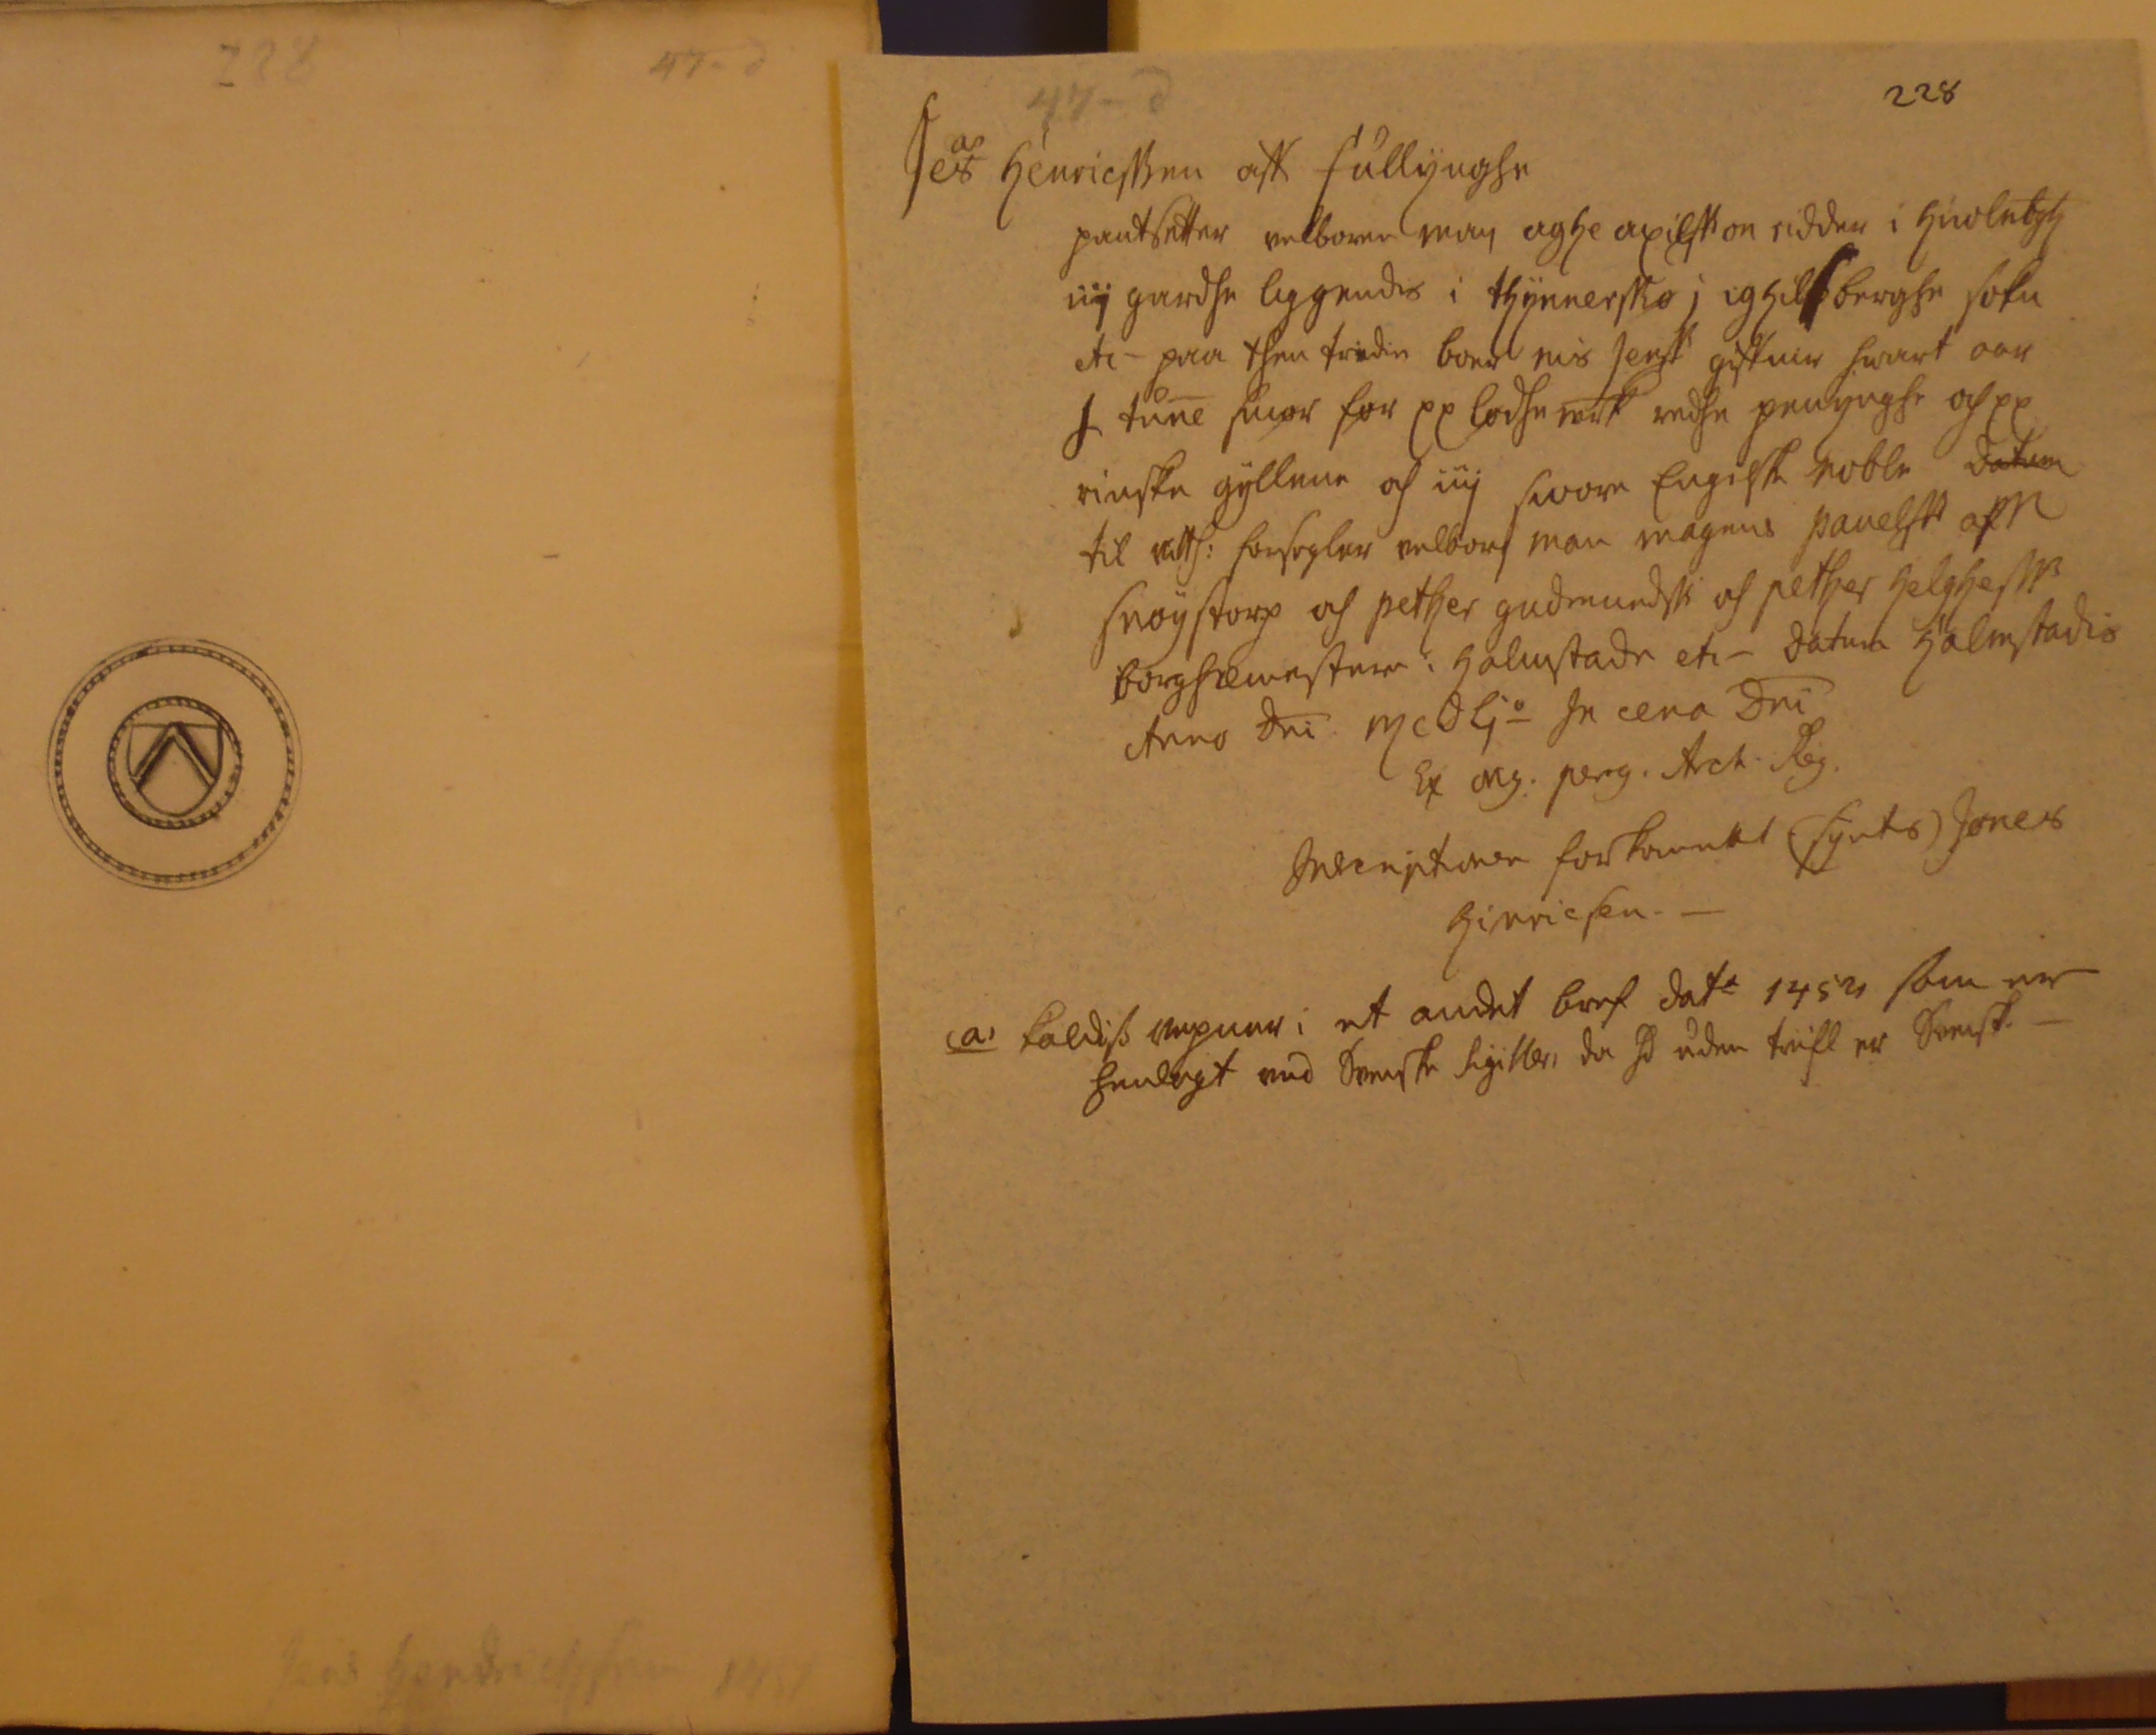 228
47-d
Jens Hendrichsen 1451
47-d
228
Jes a) Henricssen aff fullynghe
pantsetter velboren man aghe axilsson ridder i Hiwlebgh
iiij gardhe liggendis i thynnersko j ighilsberghe sokn
etc - paa then tridie boer nis Jenss giffuir hwart aar
J tunne smør for xx lødhe mrk redhe penynghe oc xx
rinske gyllene oc iiij swore Engelske noble datum
til vitth: forsegler velborn man magens pauelss aff
snøystorp oc pether gudmundss oc pether helghess
borghemestere i Halmstade etc - Datum Halmstadis
Anno Dni Mcdlj° In cena Dni
Ex org. perg. Arch. Reg.
Inscriptionen forkommet (synts) Jones
Hinricsen. —
(a) kaldis wepner i et andet bref dat: 1452 som er
henlagt ved Svenske sigiller, da hd uden tvifl er Svensk —